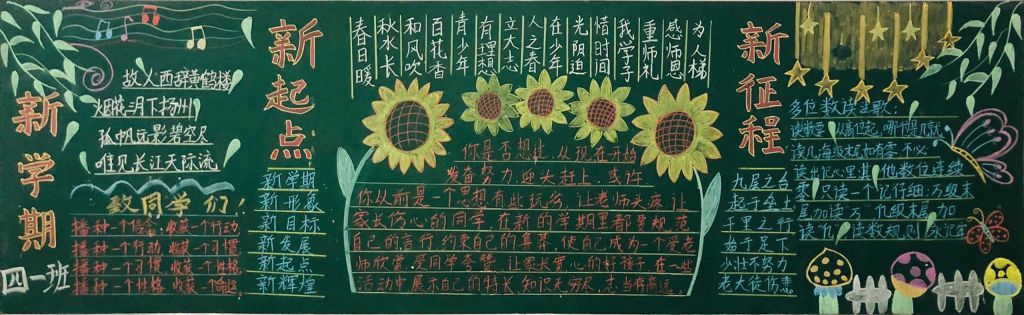 新学期
四一班
故人西辞黄鹤楼
烟花三月下扬州
孤帆远影碧空尽
唯见长江天际流
致同学们！
播种一个信念，收获一个行动
播种一个行动，收获一个习惯
播种一个习惯，收获一个性格
播种一个性格，收获一个命运
新起点
新学期
新形象
新目标
新发展
新起点
新辉煌
春日暖
秋水长
和风吹
百花香
青少年
有理想
立大志
人之春
在少年
光阴迫
惜时间
我学子
重师礼
感师恩
为人梯
你是否想过，从现在开始
发奋努力，迎头赶上，或许
你从前是一个思想有些玩劣，让老师头疼，让
家长伤心的同学，在新的学期里都要规范
自己的言行，约束自己的
使自己成为一个受老
师欣赏，受同学夸赞，让家长宽心的好孩子，在一些
活动中展示自己的特长，知识无穷尽，志当存高远。
新征程
九层之台
起于垒土
千里之行
始于足下
少壮不努力
老大徒伤悲
多位数读法歌：
读数要从高位起，哪位是几就
读几
每级末尾若有零不必
读出记心里，其他数位连续
零，只读一个记仔细，万级末
尾加读万，亿级末尾加
读亿，读数规则永记牢